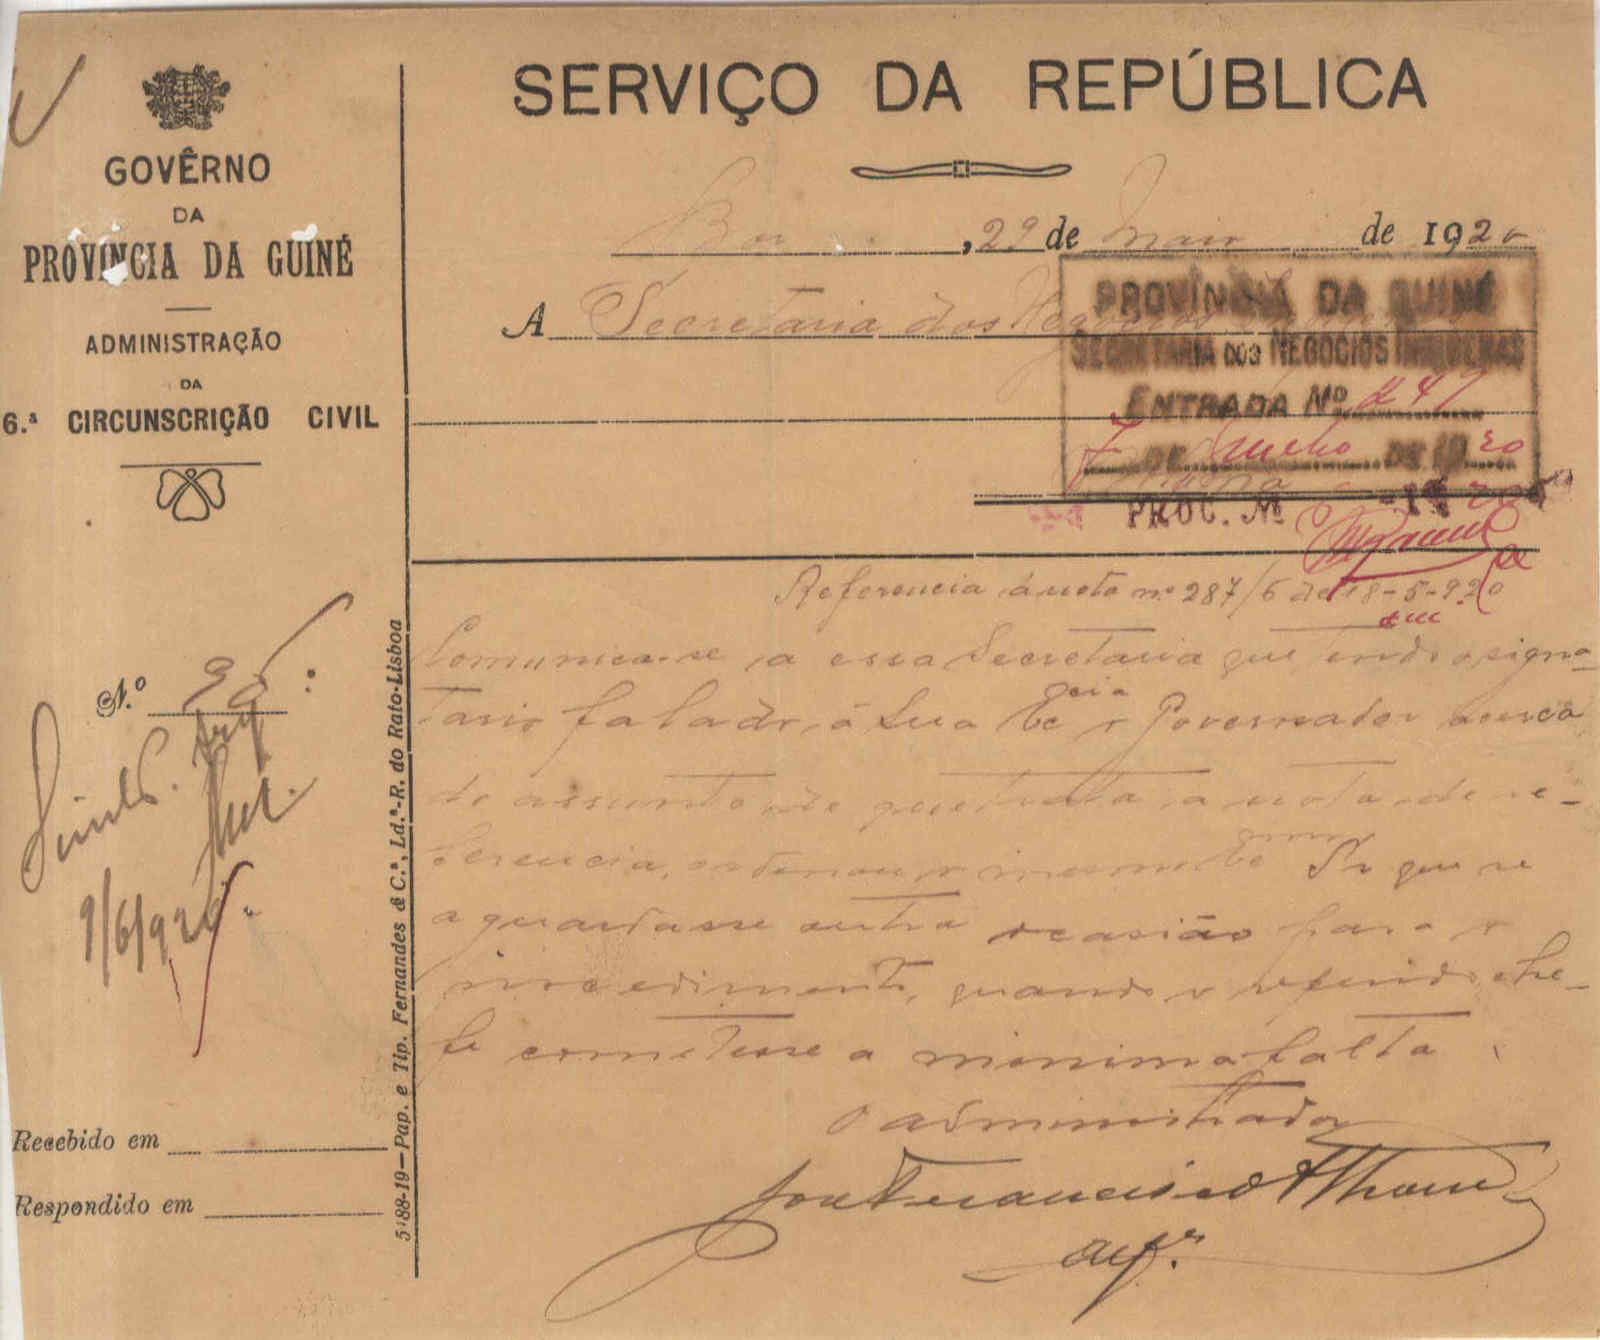 SERVIÇO DA REPÚBLICA
GOVÊRNO
DA
PROVÍNCIA DA GUINÉ
ADMINISTRAÇÃO
DA
6.ª CIRCUNSCRIÇÃO CIVIL
, 29 de Maio de 1920
A Secretaria dos Negocios
PROVÍNCIA DA GUINÉ
SECRETARIA DOS NEGOCIOS INDIGENAS
ENTRADA Nº 247
7 DE Junho DE 1920
PROC. Nº
Referencia á nota nº 287/6 de 18-5-920
Comunica-se a essa Secretaria que tendo o signa-
tario falado, á Sua Ex.cia o Governador acerca
do assunto de que trata a nota de re-
ferencia, ordenou o mesmo Ex.mo Sr que se
aguardasse outra ocasião para o
procedimento, quando o referido che-
fe cometesse a minima falta.
O administrador
José Francisco
alf.
N.º 96
9/6/920
Recebido em
Respondido em
5188-19—Pap. e Tip. Fernandes & C.ª, Ld.ª-R. do Rato-Lisboa